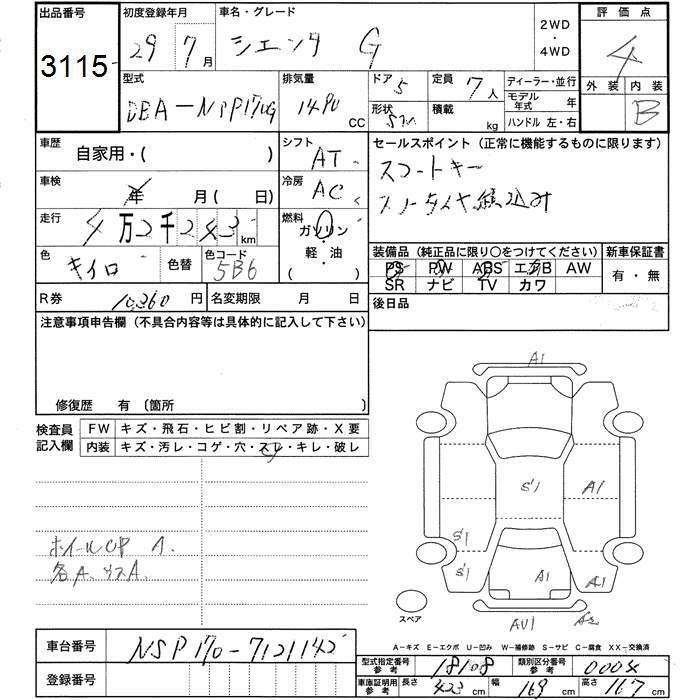 出品番号 3115
初度登録年月 29年 7月
車名・グレード シエンタ G
2WD・4WD
評価点 4
外装 内装 B
型式 DBA-NSP170G
排気量 1490 CC
ドア 5
形状 5W
定員 7人
積載 kg
ディーラー・並行
モデル年式 年
ハンドル 左・右
車歴 自家用・( )
シフト AT
セールスポイント (正常に機能するものに限ります)
スマートキー
車検 年 月 ( 日)
冷房 AC
走行 4万2千243 km
燃料 ガソリン・軽・油 ( )
色 キイロ 色替 色コード 5B6
装備品 (純正品に限り○をつけてください) 新車保証書
PS PW ABS エアB AW 有・無
SR ナビ TV カワ
R券 10,360円 名変期限 月 日
後日品
注意事項申告欄 (不具合内容等は具体的に記入して下さい)
修復歴 有 〔箇所 〕
検査員記入欄
FW キズ・飛石・ヒビ割・リペア跡・X要
内装 キズ・汚レ・コゲ・穴・スレ・キレ・破レ
A1
S'1 A1
S'1
S'1 A1 A2
AU1 A2
スペア
ホイールCAP A.
各A.
車台番号 NSP170-7121142
登録番号
A-キズ E-エクボ U-凹み W-補修跡 S-サビ C-腐食 XX-交換済
型式指定番号参考 18108 類別区分番号参考 0004
車庫証明用参考 長さ 423 cm 幅 169 cm 高さ 167 cm